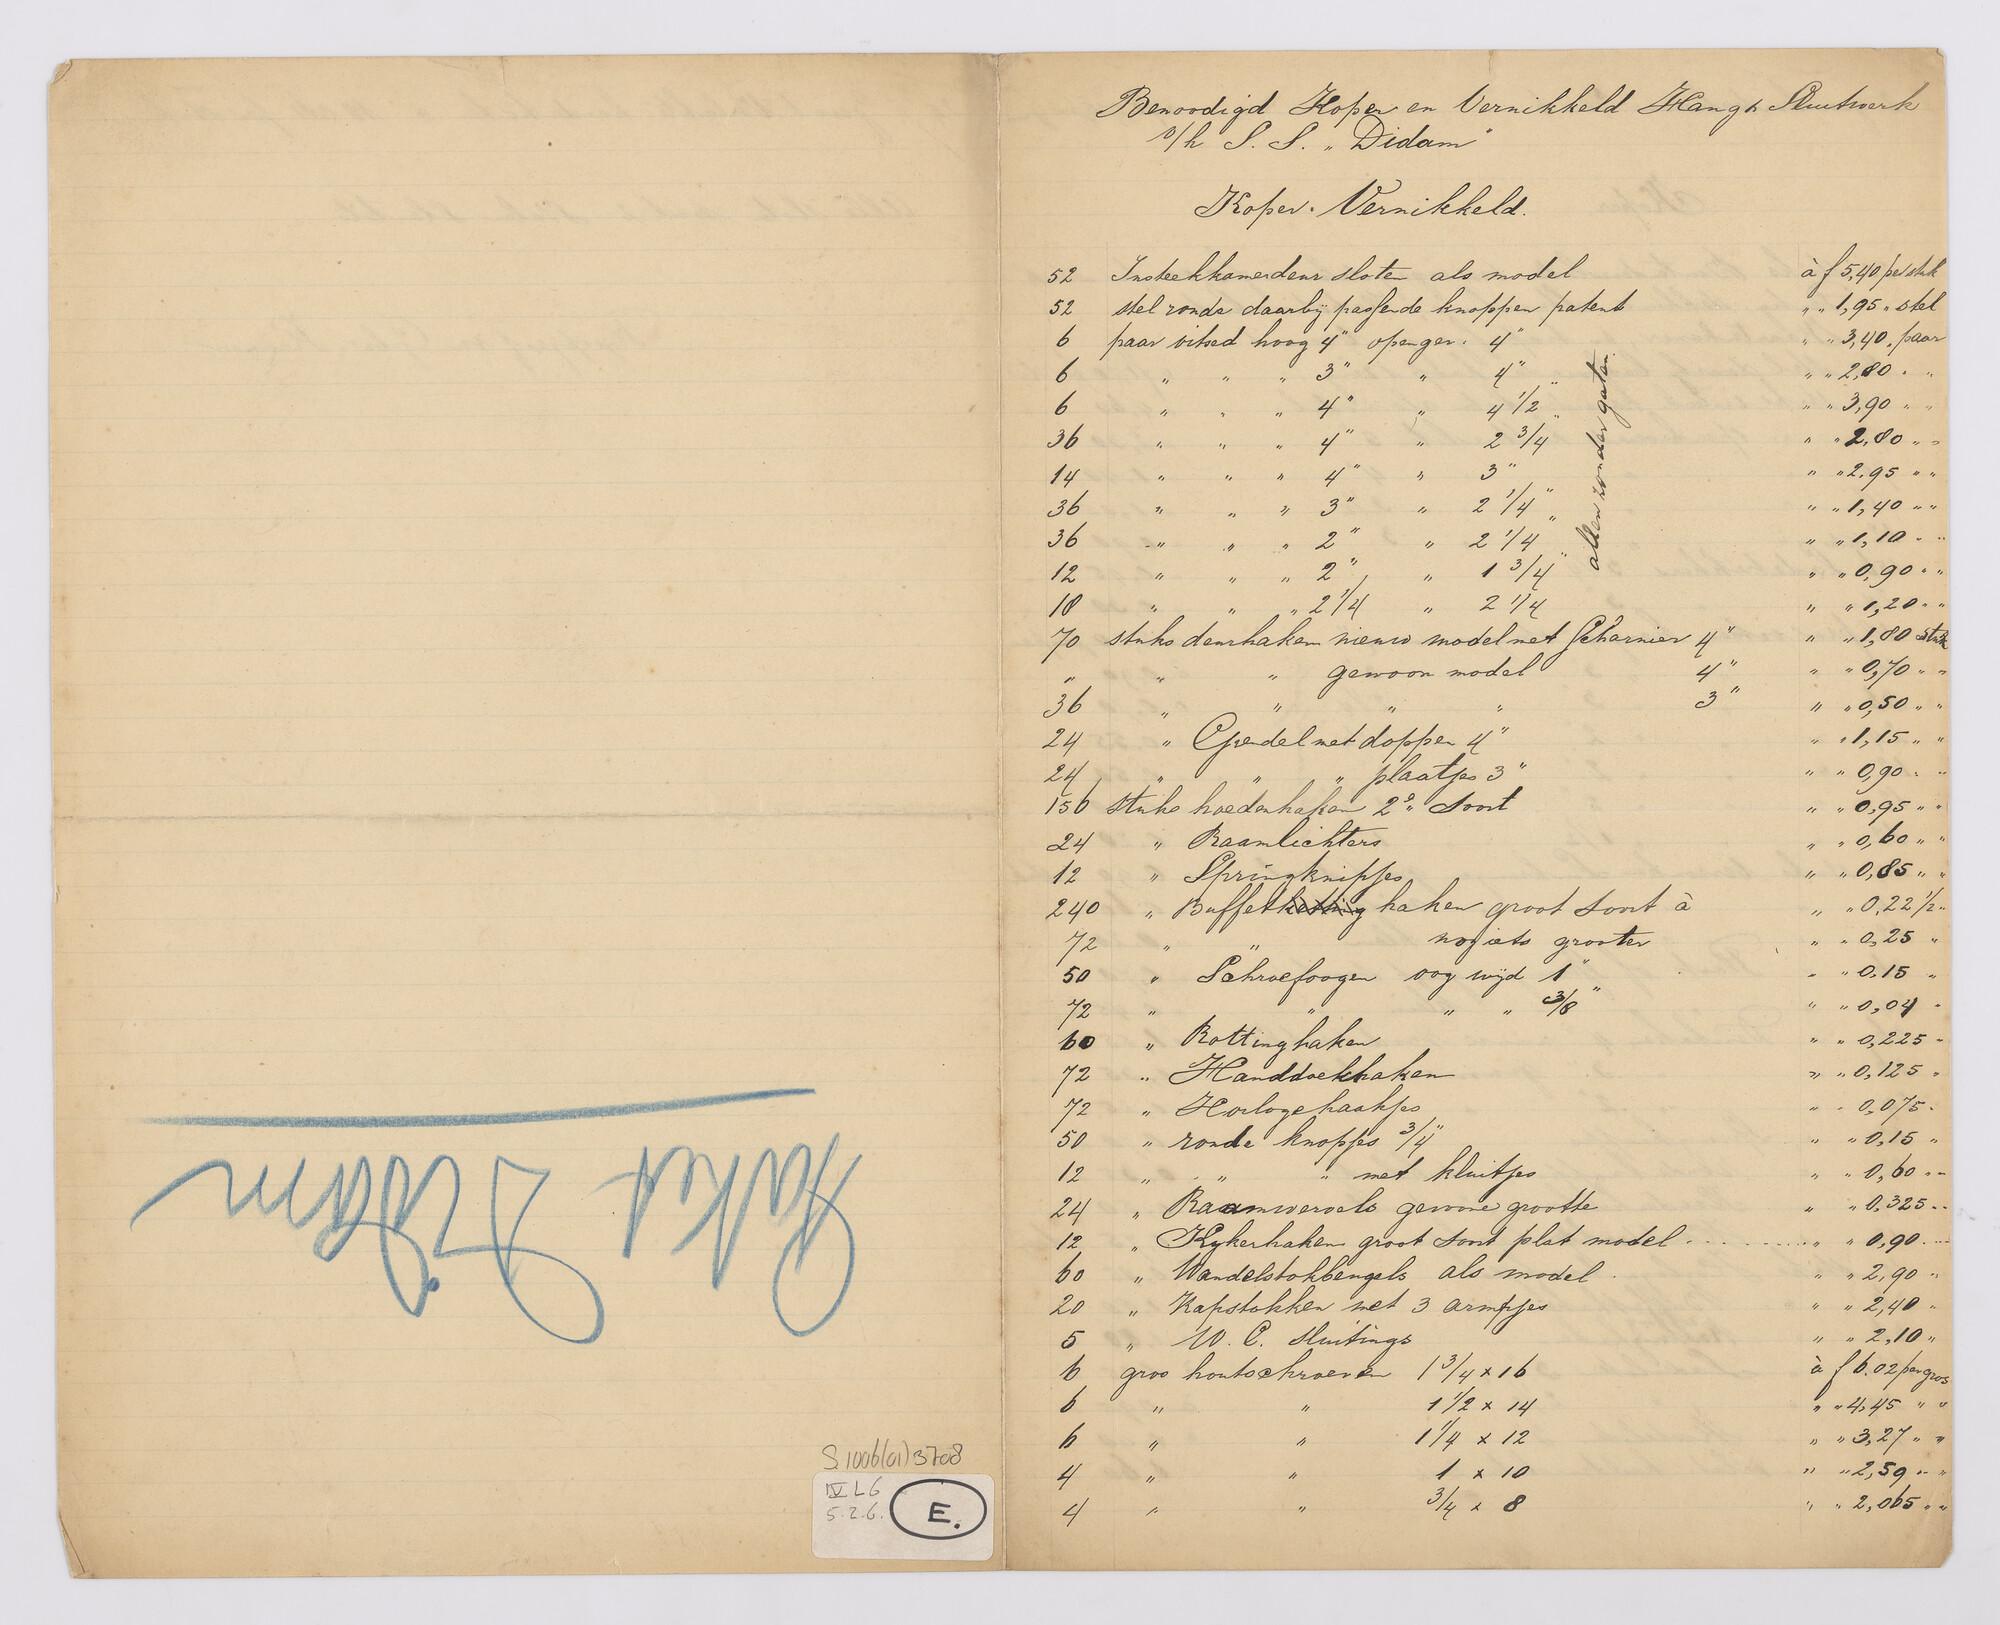 Benoodigd Koper en Vernikkeld Hang & Sluitwerk
v/h S. S. „Didam"
Koper. Vernikkeld.
52 Insteekkamerdeur sloten als model à f 5,40 per stuk
52 stel ronde daarbij passende knoppen patent „ „ 1,95 „ stel
6 paar uitzed hoog 4" open ger. 4" „ „ 3,40 „ paar
6 „ „ „ 3" „ 4" „ „ 2,80 „ „
6 „ „ „ 4" „ 4 1/2" „ „ 3,90 „ „
36 „ „ „ 4" „ 2 3/4" „ „ 2,80 „ „
14 „ „ „ 4" „ 3" „ „ 2.95 „ „
36 „ „ „ 3" „ 2 1/4" „ „ 1,40 „ „
36 „ „ „ 2" „ 2 1/4" „ „ 1,10 „ „
12 „ „ „ 2" „ 1 3/4" „ „ 0,90 „ „
18 „ „ „ 2 1/4 „ 2 1/4 „ „ 1,20 „ „
allen zonder gaten
70 stuks deurhaken nieuw model met Scharnier 4" „ „ 1,80 stuk
„ „ „ gewoon model 4" „ „ 0,70 „ „
36 „ „ „ „ 3" „ „ 0,50 „ „
24 „ Grendel met doppen 4" „ „ 1,15 „ „
24 „ „ „ plaatjes 3" „ „ 0,90 „ „
156 stuks hoedenhaken 2e Soort „ „ 0,95 „ „
24 „ Raamlichters „ „ 0,60 „ „
12 „ Springknipjes „ „ 0,85 „ „
240 „ Buffetketting haken groot soort à „ „ 0,22 1/2 „
72 „ „ nog iets grooter „ „ 0,25 „
50 „ Schroefoogen oog wijd 1" „ „ 0,15 „
72 „ „ „ „ 3/8" „ „ 0,04 „
60 „ Rottinghaken „ „ 0,225 „
72 „ Handdoekhaken „ „ 0,125 „
72 „ Horlogehaakjes „ „ 0,075 „
50 „ ronde knopjes 3/4" „ „ 0,15 „
12 „ „ „ met kluitjes „ „ 0,60 „ „
24 „ Raamwervels gewone grootte „ „ 0,325 „ „
12 „ Kykerhaken groot soort plat model „ „ 0,90 „
60 „ Wandelstokbeugels als model „ „ 2,90 „
20 „ Kapstokken met 3 armpjes „ „ 2,40 „
5 „ W. C. sluitings „ „ 2,10 „
6 gros houtschroeven 1 3/4 x 16 à f 6.02 per gros
6 „ „ 1 1/2 x 14 „ „ 4,45 „ „
6 „ „ 1 1/4 x 12 „ „ 3,27 „ „
4 „ „ 1 x 10 „ „ 2,59 „ „
4 „ „ 3/4 x 8 „ „ 2,065 „ „
Didam
S.1006(01)3708
IV L6
5.2.6.
E.